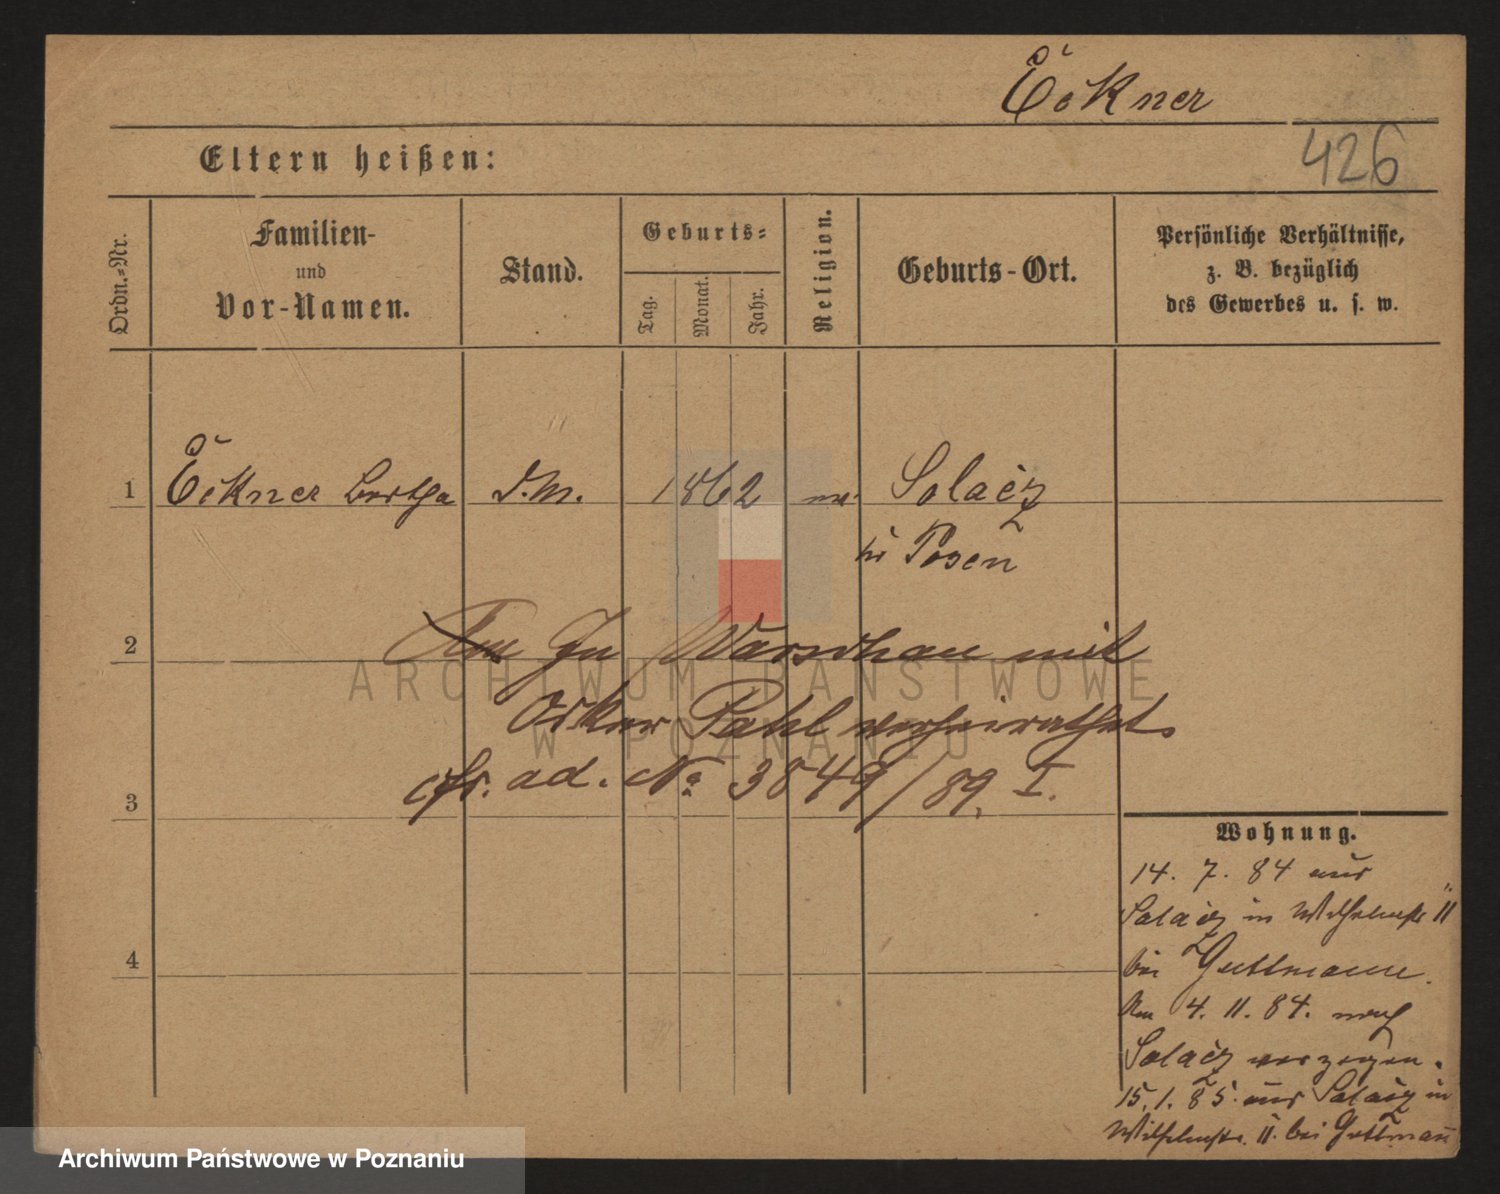 Eckner
426
Eltern heißen:
Ordn.-Nr.
Familien-
und
Vor-Namen.
Stand.
Geburts-
Tag.
Monat.
Jahr.
Religion.
Geburts-Ort.
Persönliche Verhältnisse,
z. B. bezüglich
des Gewerbes u. s. w.
1 Eckner Bertha D.M. 1862 Solacz
Posen
2
In Warschau mit
Oskar Pahl verheirathet.
cfr. ad. No 3849/89. I.
3
4
Wohnung.
14. 7. 84 aus
Solacz in Wilhelmstr 11
bei Guttmann.
Am 4. 11. 84. nach
Solacz verzogen.
15. 1. 85. aus Solacz in
Wilhelmstr. 11. bei Guttmann
ARCHIWUM PAŃSTWOWE
W POZNANIU
Archiwum Państwowe w Poznaniu